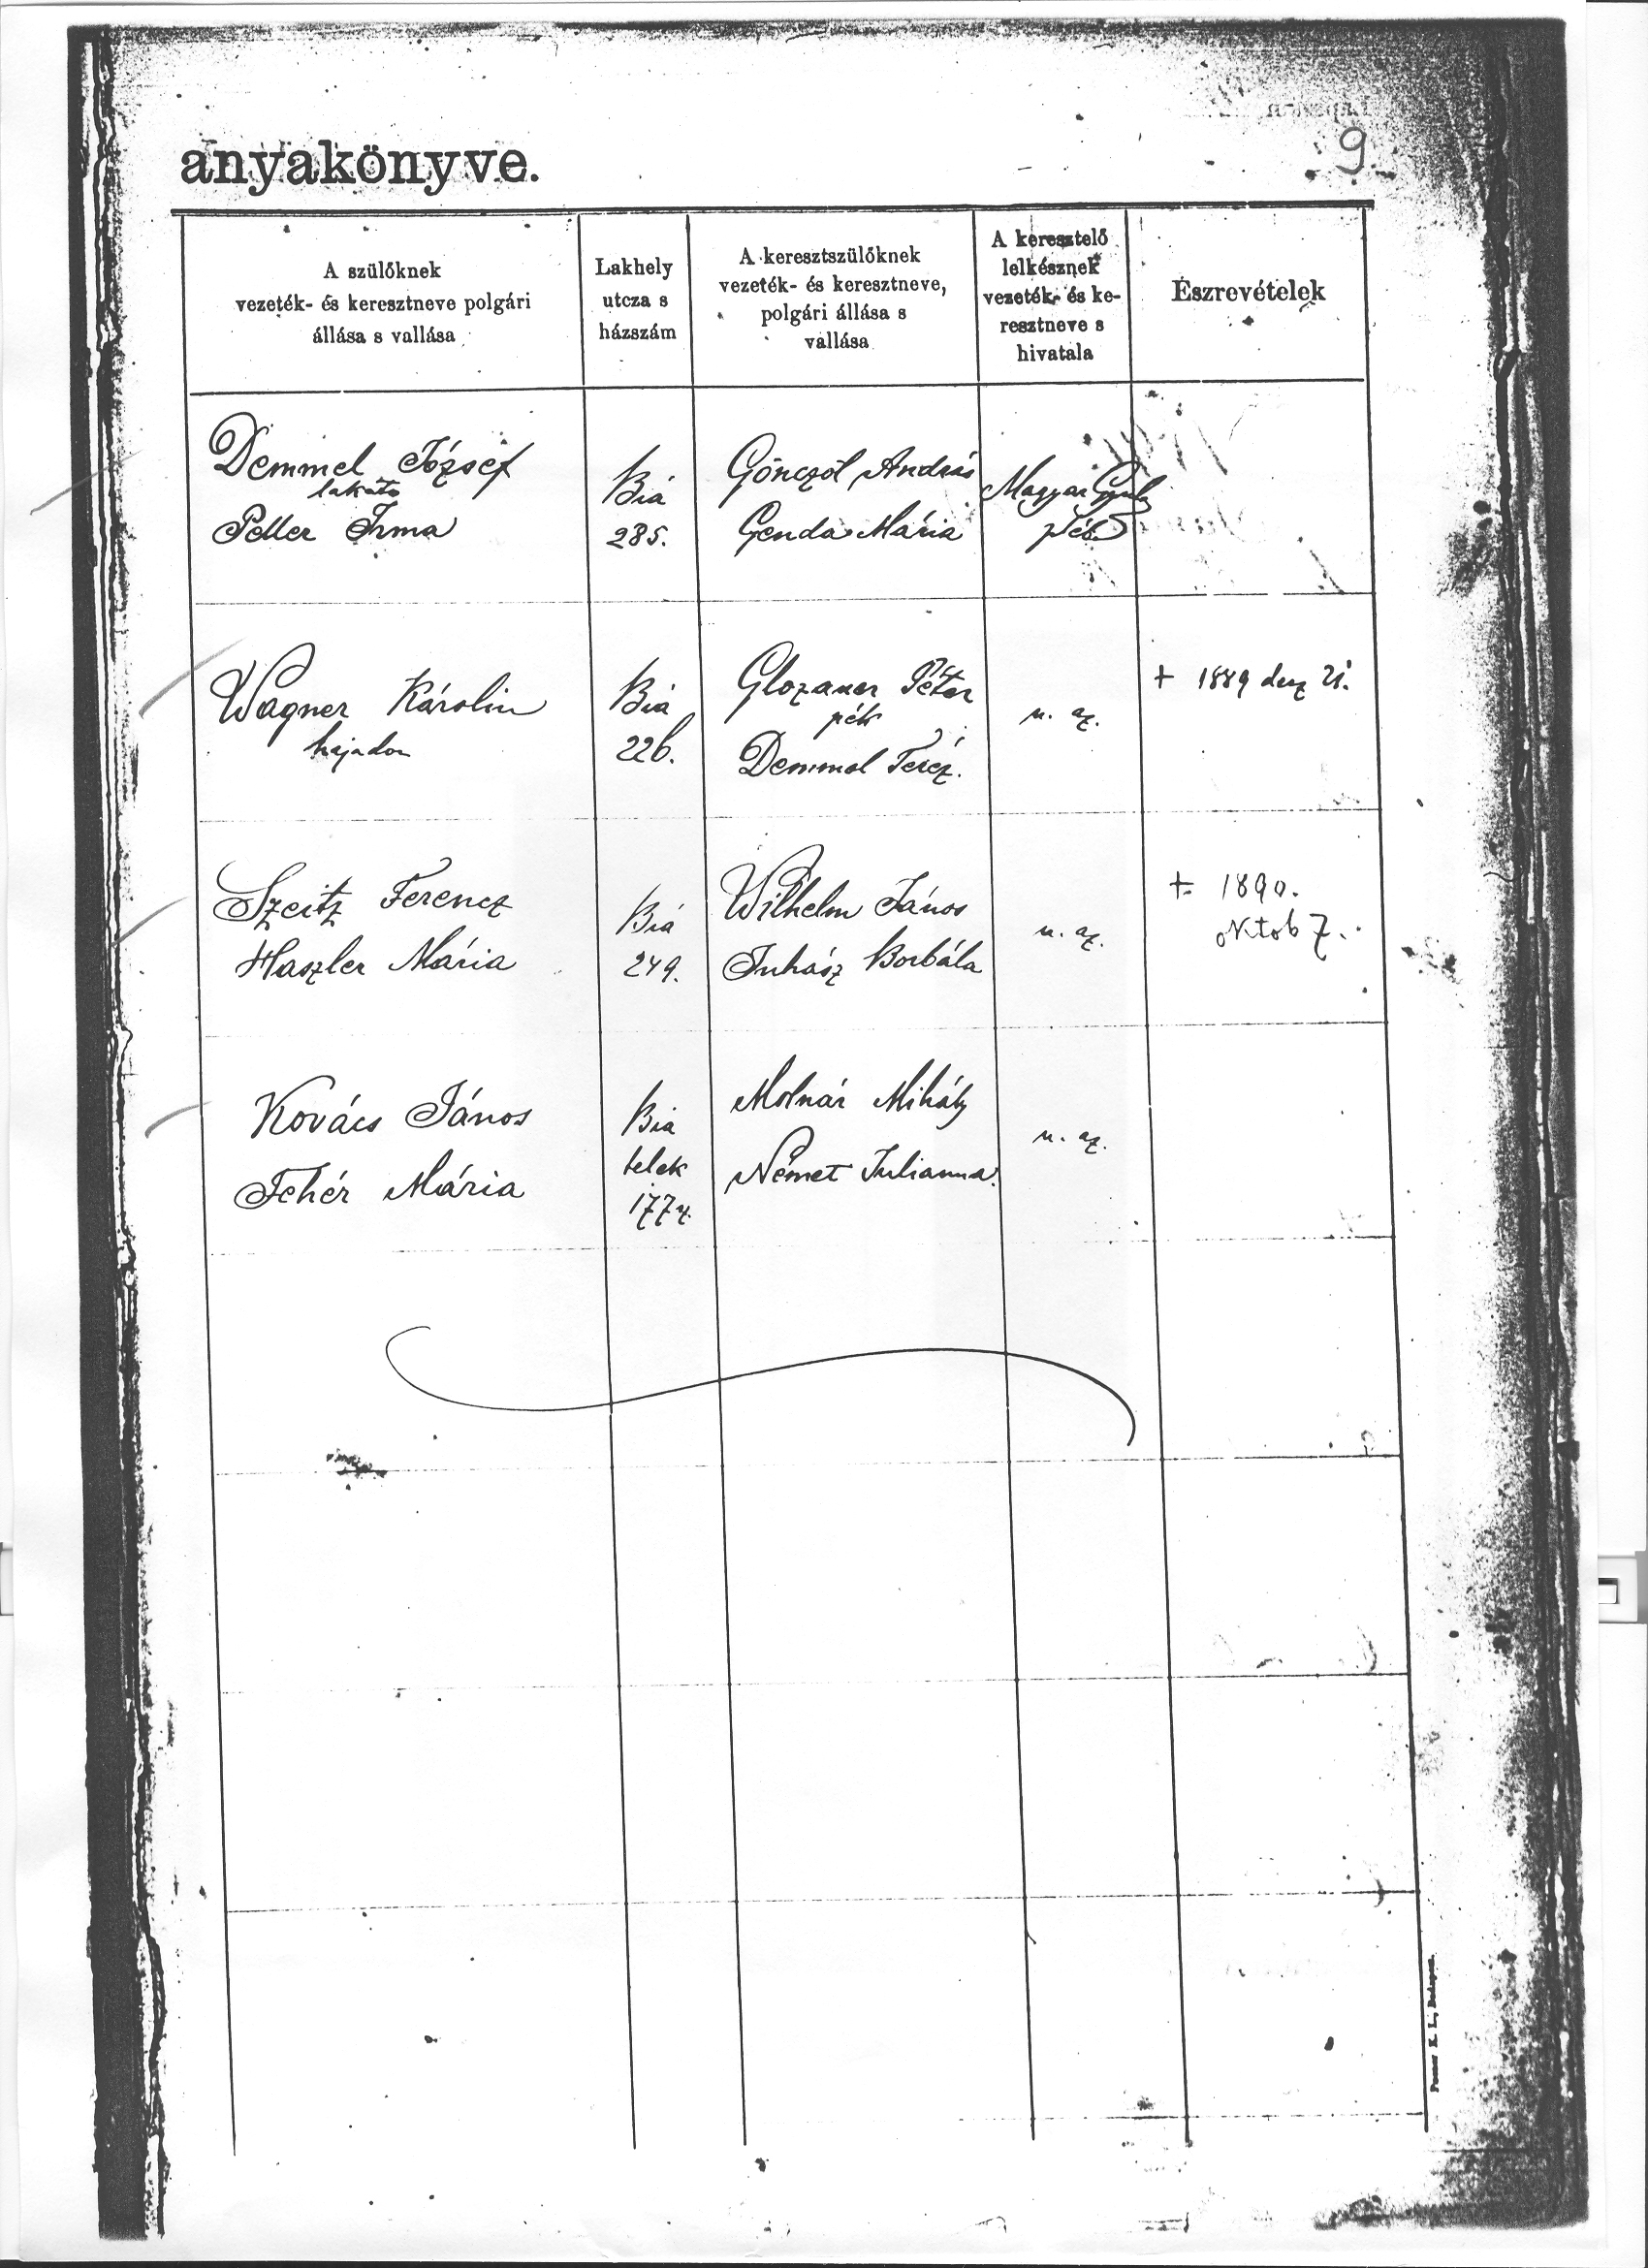 9.
anyakönyve.
A szülőknek
vezeték- és keresztneve polgári
állása s vallása
Lakhely
utcza s
házszám
A keresztszülőknek
vezeték- és keresztneve,
polgári állása s
vallása
A keresztelő
lelkésznek
vezeték- és ke-
resztneve s
hivatala
Észrevételek
Demmel József
lakatos
Peller Irma
Bia
285.
Gönczöl András
Genda Mária
Magyar Gyula
pléb.
Wagner Károlin
hajadon
Bia
226.
Péter
pék
Demmel Teréz.
u. az.
+ 1889 dez 21.
Szeitz Ferencz
Haszler Mária
Bia
249.
Wilhelm János
Juhász Borbála
u. az.
+ 1890.
oktob 7.
Kovács János
Fehér Mária
Bia
telek
177
Molnár Mihály
Német Julianna.
u. az.